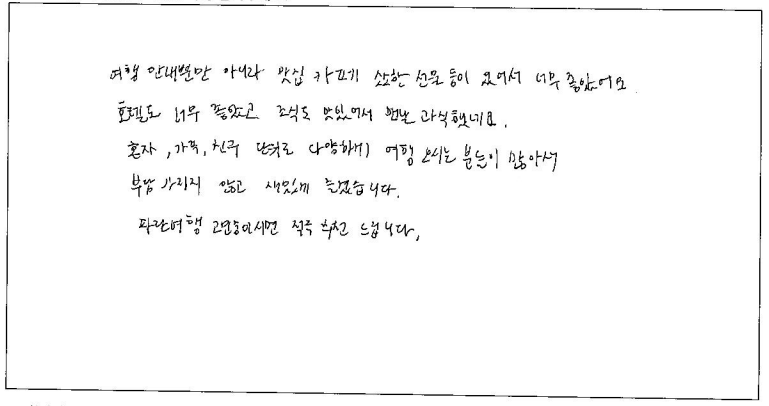 여행 안내뿐만 아니라 맛집 카페 소소한 선물 등이 있어서 너무 좋았어요
호텔도 너무 좋았고 조식도 맛있어서 맨날 과식했네요.
혼자, 가족, 친구 단위로 다양하게 여행 오시는 분들이 많아서
부담 가지지 않고 재밌게 즐겼습니다.
파란여행 고민중이시면 적극 추천 드립니다.